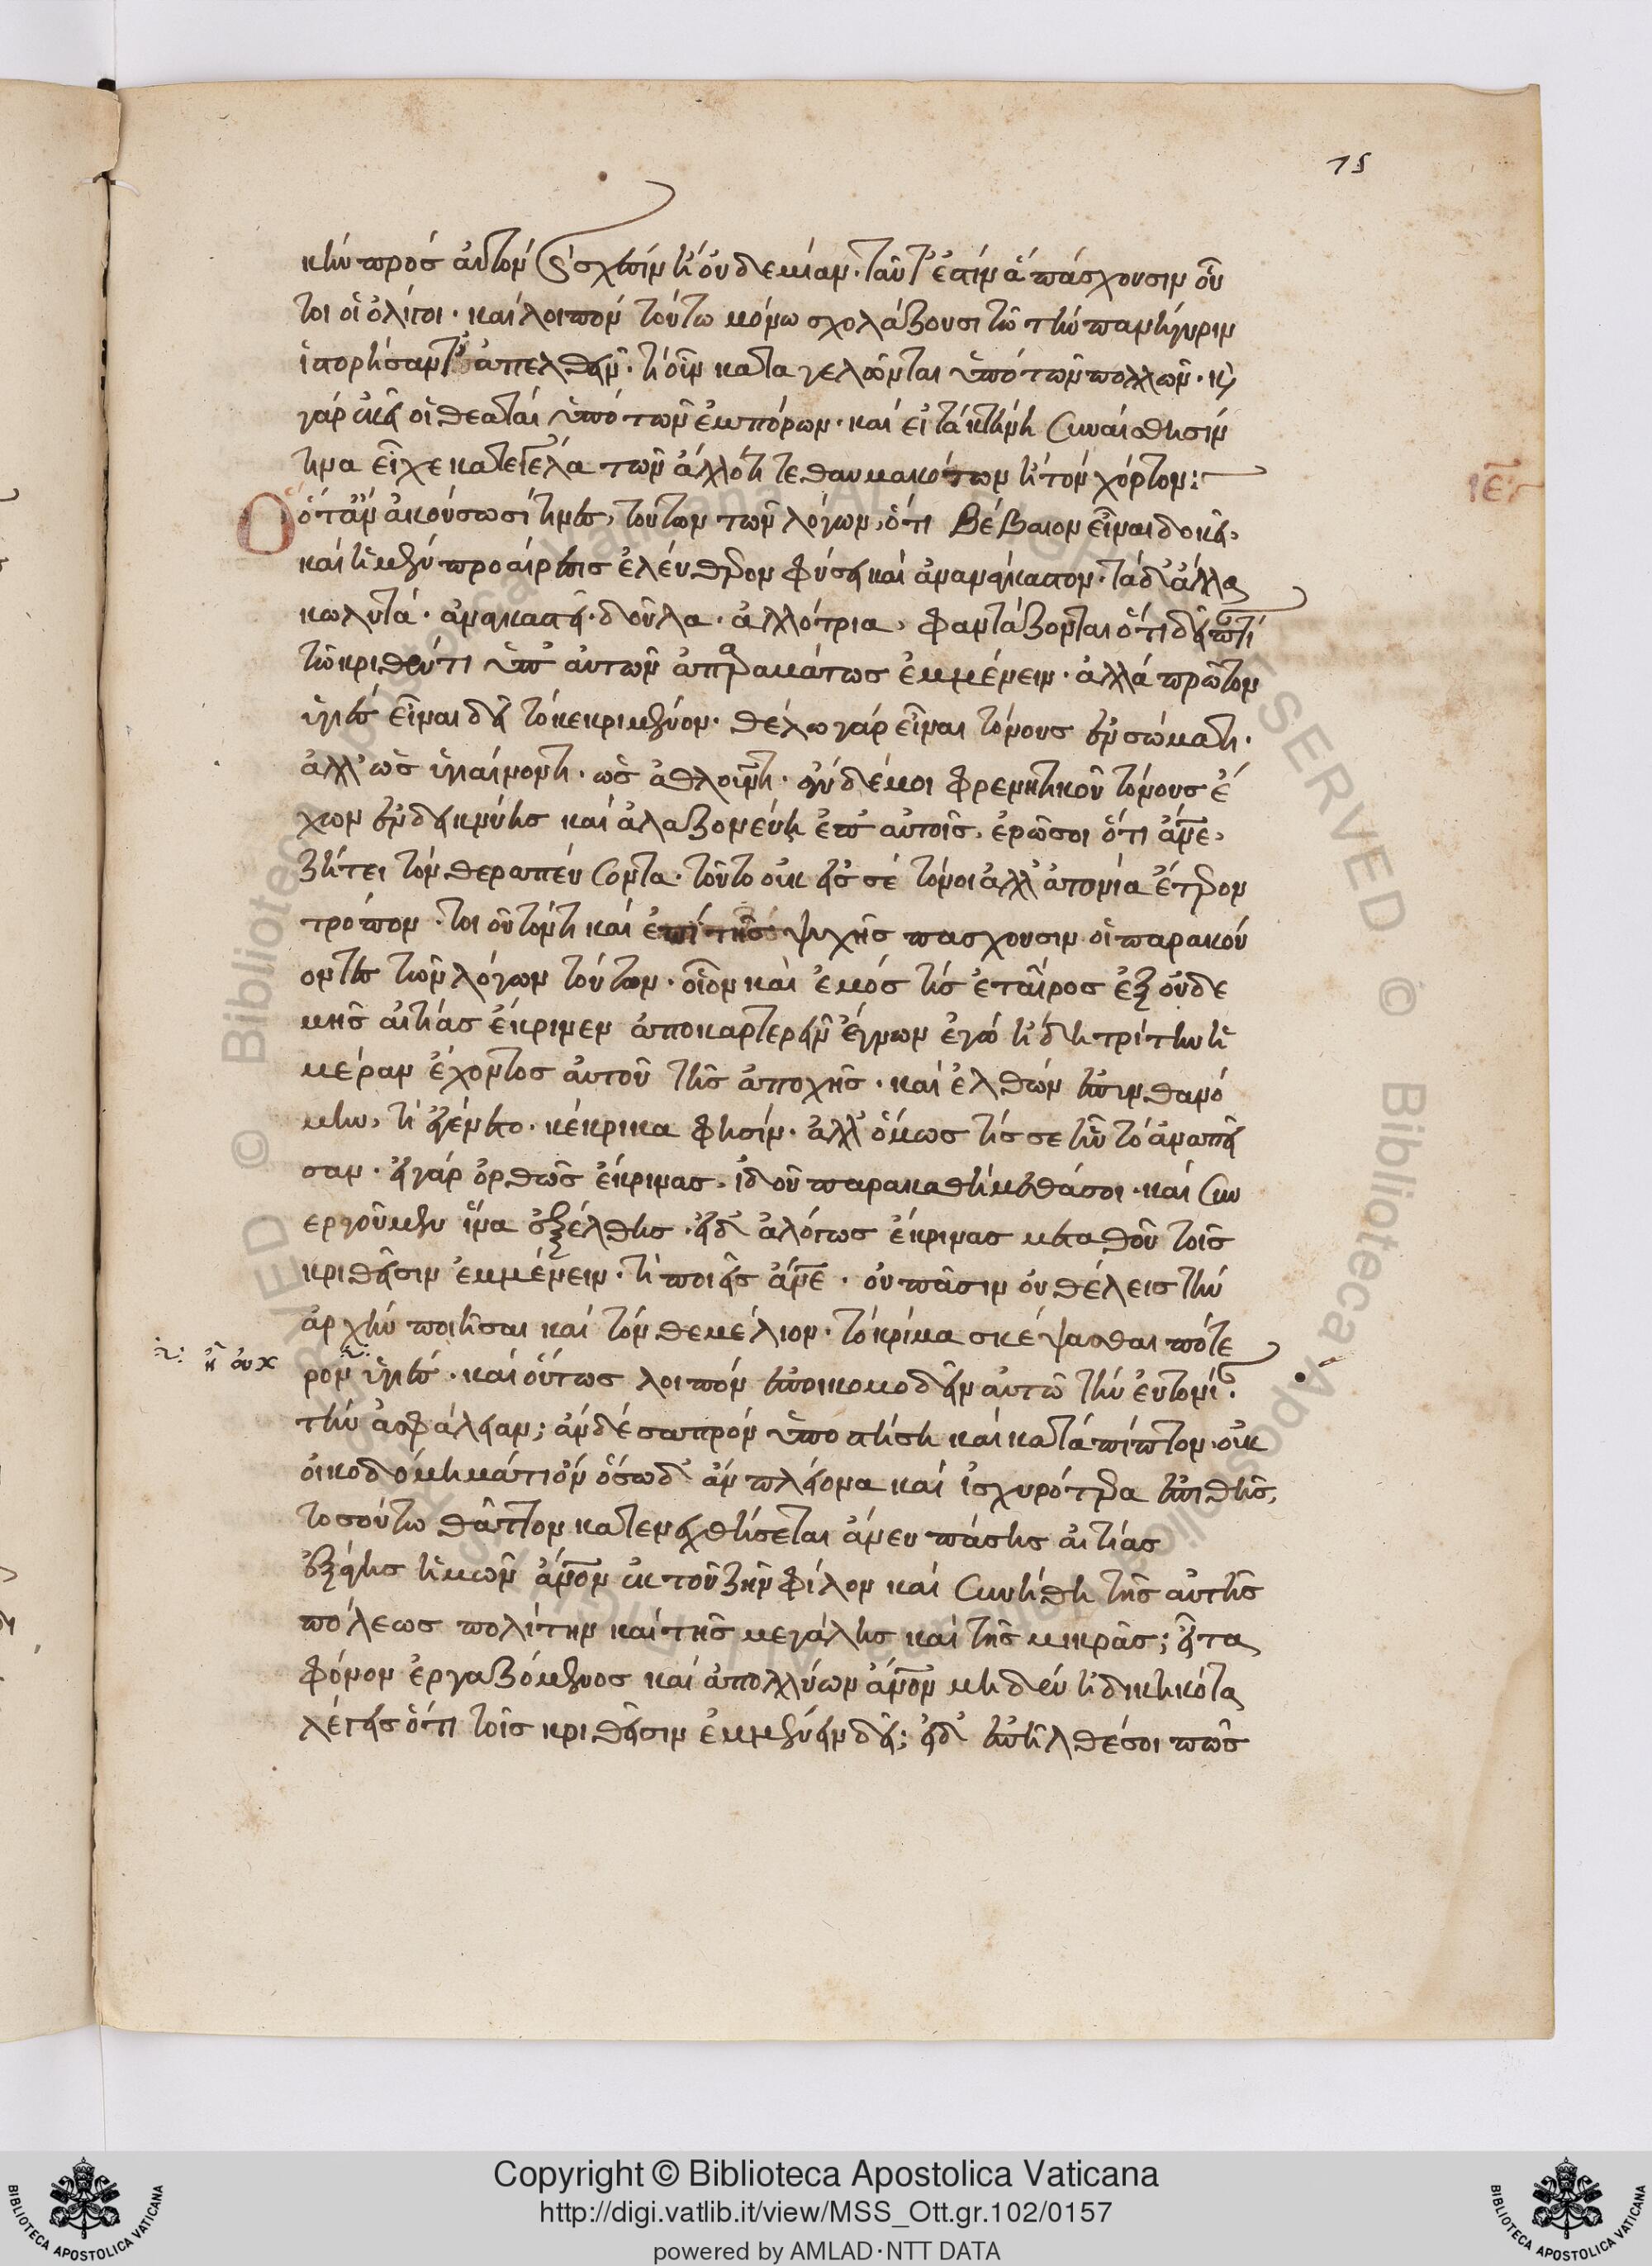 75
κὴν πρὸς αὐτὸν σχέσιν ἢ οὐδεμίαν· ταῦτ' ἔστιν ἃ πάσχουσιν οὗ
τοι οἱ ὀλίγοι· καὶ λοιπὸν τούτω μόνω σχολάζουσι τῶ τὴν πανήγυριν
ἱστορήσαντες ἀπελθεῖν· τί οὖν καταγελῶνται ὑπὸ τῶν πολλῶν· καὶ
γὰρ ἐκεῖ οἱ θεαταὶ ὑπὸ τῶν ἐμπόρων· καὶ εἰ τὰ κτήνη συναίσθησίν
τινα εἶχε κατεγέλα τῶν ἄλλό τι τεθαυμακότων ἢ τὸν χόρτον:
ιε
Ὅταν ἀκούσωσί τινες, τούτων τῶν λόγων, ὅτι βέβαιον εἶναι δοκεῖ,
καὶ ἡ μὲν προαίρεσις ἐλεύθερον φύσει καὶ ἀναγκαστον· τὰ δ' ἄλλα
κωλυτά· ἀναγκαστά· δοῦλα· ἀλλότρια, φαντάζονται ὅτι δεῖ παντὶ
τῶ κριθέντι ὑπ' αὐτῶν ἀπαραβάτως ἐμμένειν· ἀλλὰ πρῶτον
ὑγιὲς εἶναι δεῖ τὸ κεκριμένον· θέλω γὰρ εἶναι τόνους ἐν σώματι·
ἀλλ' ὡς ὑγιαίνοντι· ὡς ἀθλοῦντι· ἂν δέ μοι φρενητικοῦ τόνους ἔ
χων ἐνδεικνύης καὶ ἀλαζονεύη ἐπ' αὐτοῖς, ἐρῶ σοι ὅτι ἄνθρωπε,
ζήτει τὸν θεραπεύσοντα· τοῦτο οὐκ εἰσὶ τόνοι ἀλλ' ἀτονία ἕτερον
τρόπον· τοιοῦτόν τι καὶ ἐπὶ τῆς ψυχῆς πασχουσιν οἱ παρακού
οντες τῶν λόγων τούτων· οἷον καὶ ἐμός τις ἑταῖρος ἐξ οὐδε
μιᾶς αἰτίας ἔκρινεν ἀποκαρτερεῖν ἔγνων ἐγὼ ἤδη τρίτην ἡ
μέραν ἔχοντος αὐτοῦ τῆς ἀποχῆς· καὶ ἐλθὼν ἐπυνθανό
μην, τί ἐγένετο· κέκρικα φησίν· ἀλλ' ὅμως τίς σε ἦν τὸ ἀναπεῖ
σαν· εἰ γὰρ ὀρθῶς ἔκρινας, ἰδοὺ παρακαθήμεθά σοι· καὶ συν
εργοῦμεν ἵνα ἐξέλθης· εἰ δ' ἀλόγως ἔκρινας μετάθου τοῖς
κριθεῖσιν ἐμμένειν· τί ποιεῖς ἄνθρωπε· οὐ πᾶσιν οὐ θέλεις τὴν
ἀρχὴν ποιῆσαι καὶ τὸν θεμέλιον· τὸ κρίμα σκέψασθαι πότε
ἢ οὐχ
ρον ὑγιές· καὶ οὕτως λοιπὸν ἐποικοδομεῖν αὐτῶ τὴν εὐτονίαν·
τὴν ἀσφάλειαν; ἂν δὲ σαπρὸν ὑποστήση καὶ καταπίπτον, οὐκ
οἰκοδόμημά τι ὂν ὅσω δ' ἂν πλείονα καὶ ἰσχυρότερα ἐπιθῆς,
τοσούτω θᾶττον κατενεχθήσεται ἄνευ πάσης αἰτίας
ἐξάγεις ἡμῶν ἄνθρωπον ἐκ τοῦ ζῆν φίλον καὶ συνήθη τῆς αὐτῆς
πόλεως πολίτην καὶ τῆς μεγάλης καὶ τῆς μικρᾶς; εἶτα
φόνον ἐργαζόμενος καὶ ἀπολλύων ἄνθρωπον μηδὲν ἠδικηκότα
λέγεις ὅτι τοῖς κριθεῖσιν ἐμμένειν δεῖ; εἰ δ' ἐπῆλθέ σοι πῶς
Copyright © Biblioteca Apostolica Vaticana
http://digi.vatlib.it/view/MSS_Ott.gr.102/0157
powered by AMLAD·NTT DATA
BIBLIOTECA APOSTOLICA VATICANA
BIBLIOTECA APOSTOLICA VATICANA